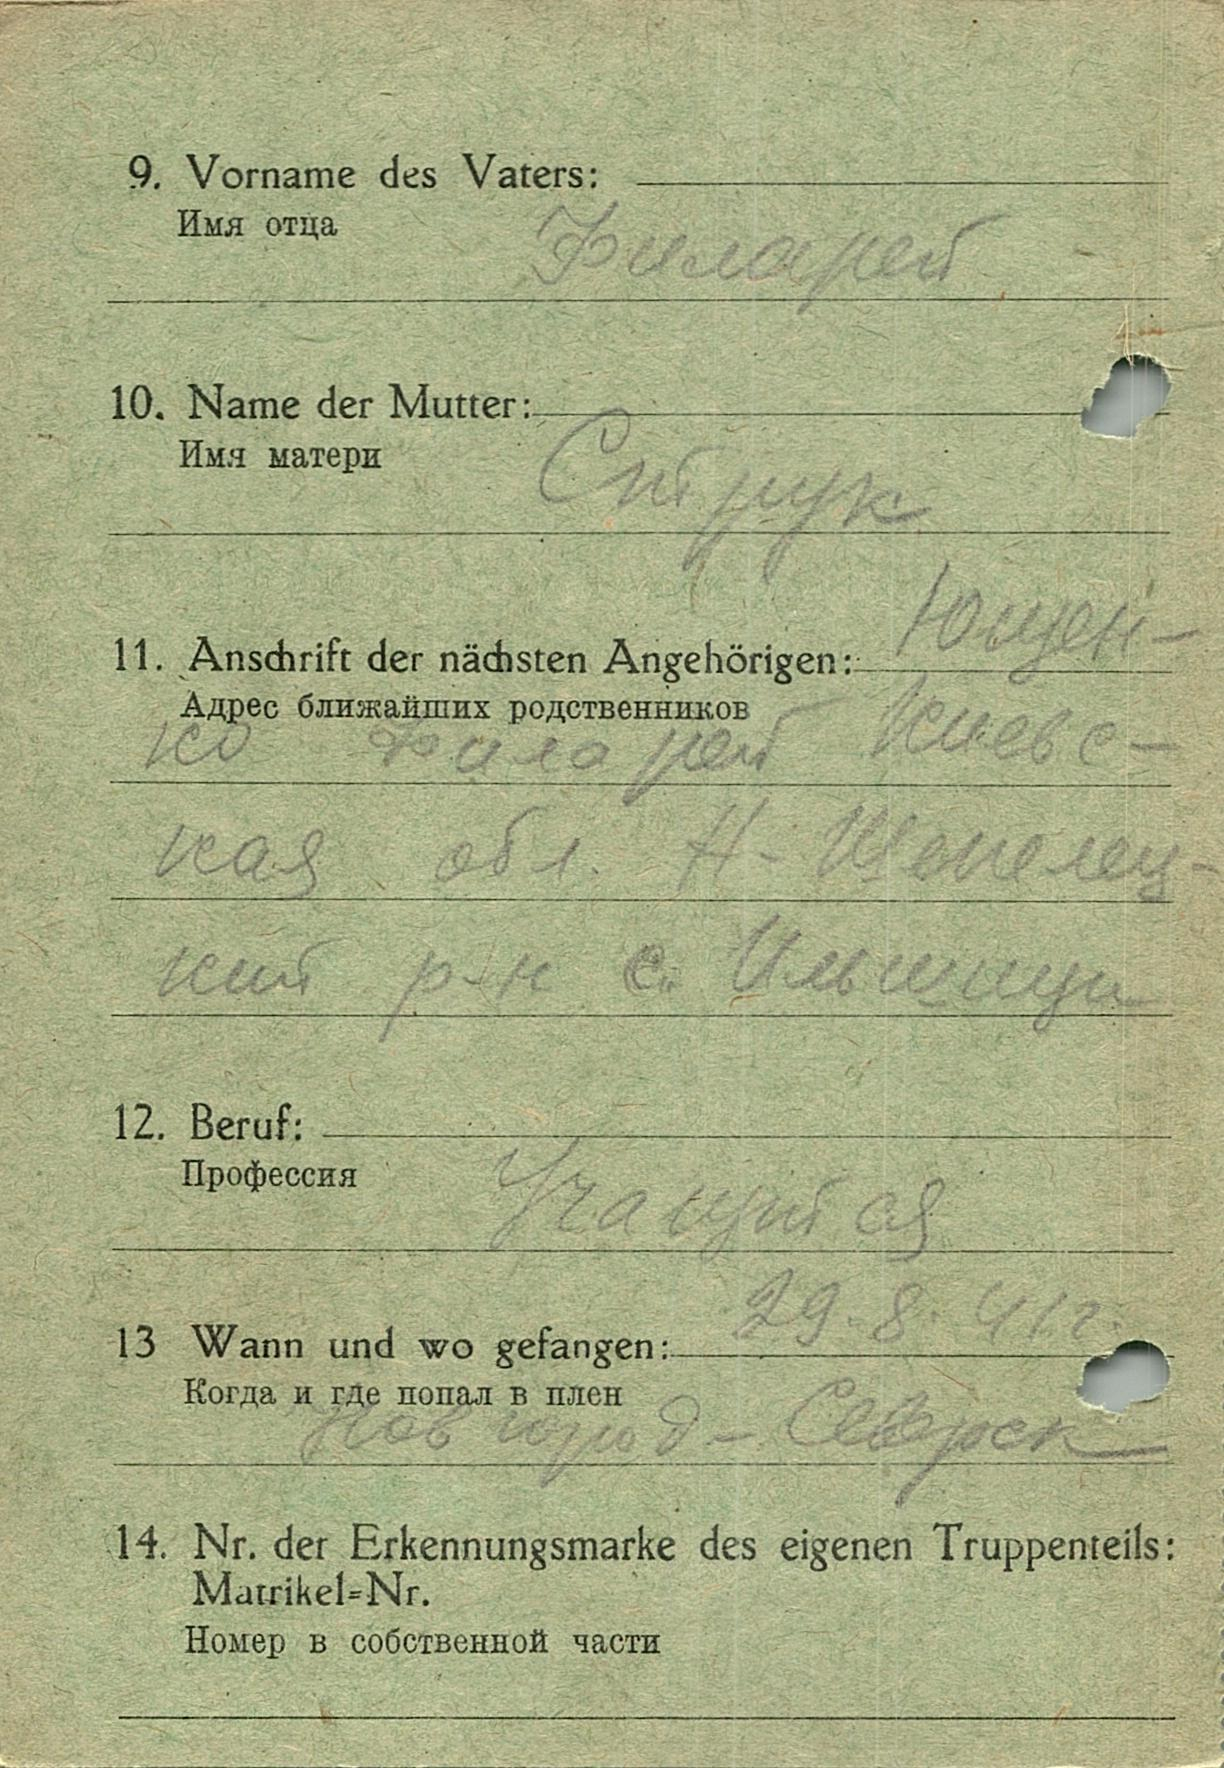 9. Vorname des Vaters:
Имя отца
Филарет
10. Name der Mutter:
Имя матери
Струк
Ющен-
11. Anschrift der nächsten Angehörigen:
Адрес ближайших родственников
ко Филарет Киевс-
кая обл. Н-Шепелец-
кий р-н с. Ильинци
12. Beruf:
Профессия
Учащийся
29.8.41г.
13 Wann und wo gefangen:
Когда и где попал в плен
Новгород-Северск
14. Nr. der Erkennungsmarke des eigenen Truppenteils:
Matrikel=Nr.
Номер в собственной части